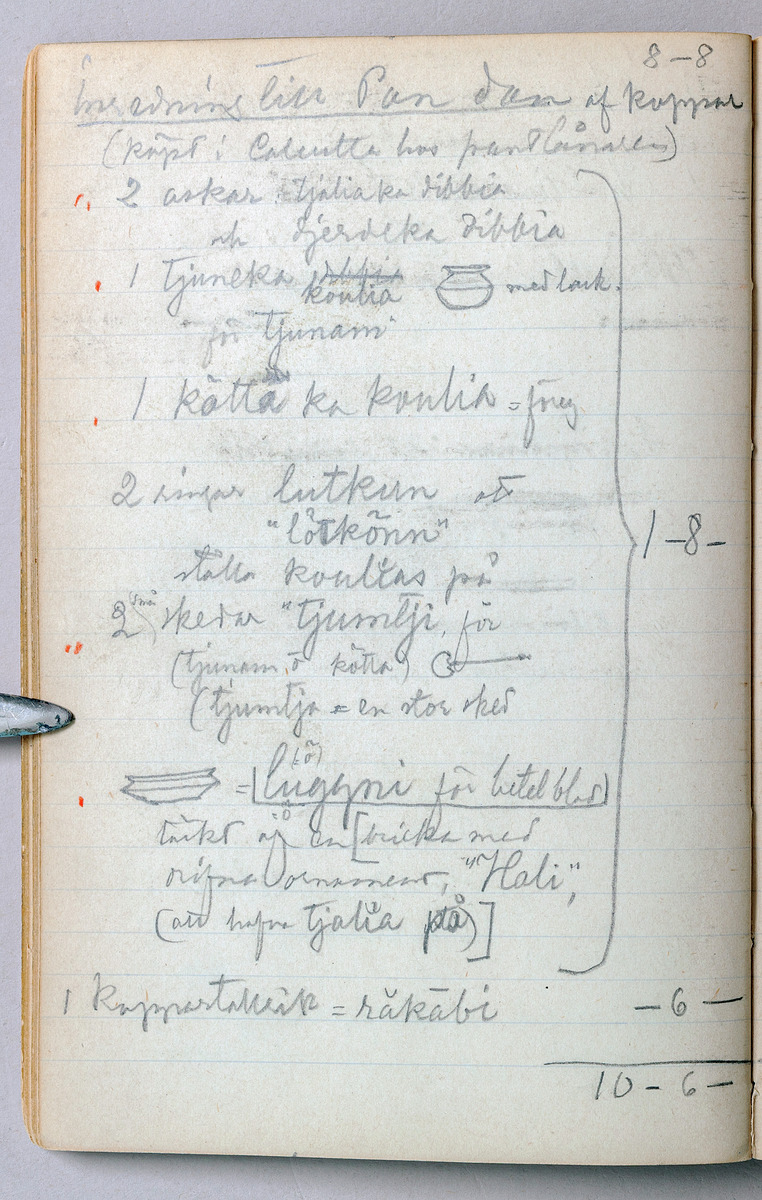 8-8
Inredning till Pan dan af koppar
(köpt i Calcutta hos pantlånaren)
2 askar tjaliaka dibbia
och djerdeka dibbia
1 tjuneka dibbia
koulia med lock.
för tjunam"
1 köttä ka koulia = föreg
2 ringar lutkun att
"lötkönn"
ställa koulias på
1-8-
2 små skedar "tjumtji, för
(tjunam o kötta)
(tjumtja = en stor sked
(ö)
= [lüggni för betelblad]
täckt af en [bricka med
ornament, "Hali",
(att hafva tjalia på)]
1 koppartallrik = råkabi -6-
10-6-